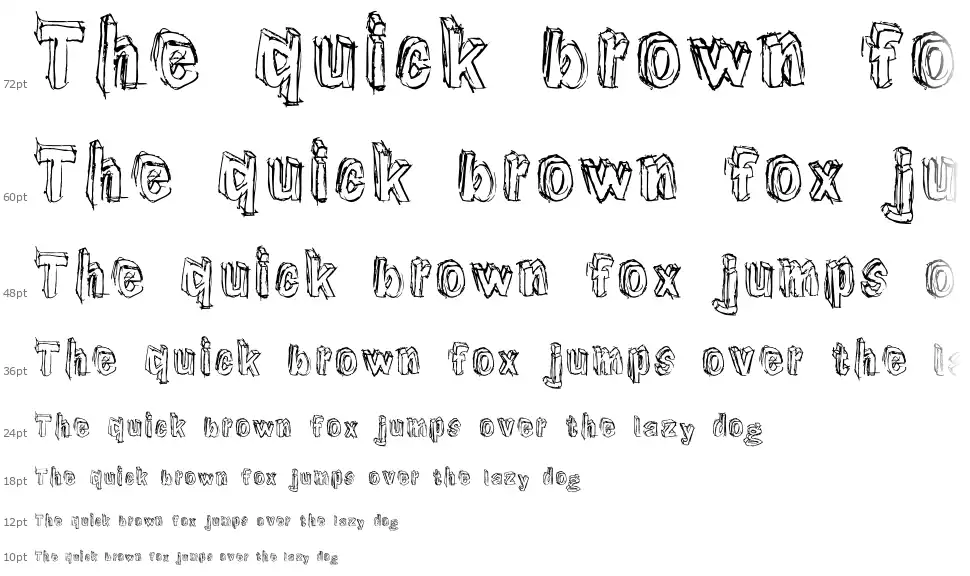 72pt The quick brown fo
60pt The quick brown fox ju
48pt The quick brown fox jumps o
36pt The quick brown fox jumps over the la
24pt The quick brown fox jumps over the lazy dog
18pt The quick brown fox jumps over the lazy dog
12pt The quick brown fox jumps over the lazy dog
10pt The quick brown fox jumps over the lazy dog